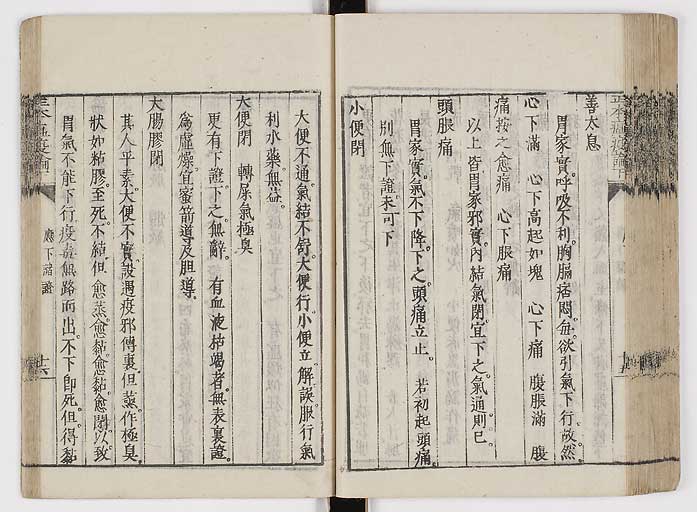 善太息
胃家實呼吸不利胸膈痞悶每欲引氣下行故然
心下滿　心下高起如塊　心下痛　腹脹滿　腹
痛按之愈痛　心下脹痛
以上皆胃家邪實內結氣閉宜下之氣通則已
頭脹痛
胃家實氣不下降下之頭痛立止　若初起頭痛
別無下證未可下
小便閉
大便不通氣結不舒大便行小便立解誤服行氣
利水藥無益
大便閉　轉屎氣極臭
更有下證下之無辭　有血液枯竭者無表裏證
爲虛燥宜蜜箭導及胆導
大腸膠閉
其人平素大便不實設遇疫邪傳裏但蒸作極臭
狀如粘膠至死不結但愈蒸愈黏愈黏愈閉以致
胃氣不能下行疫毒無路而出不下卽死但得黏
應下諸證
廿六